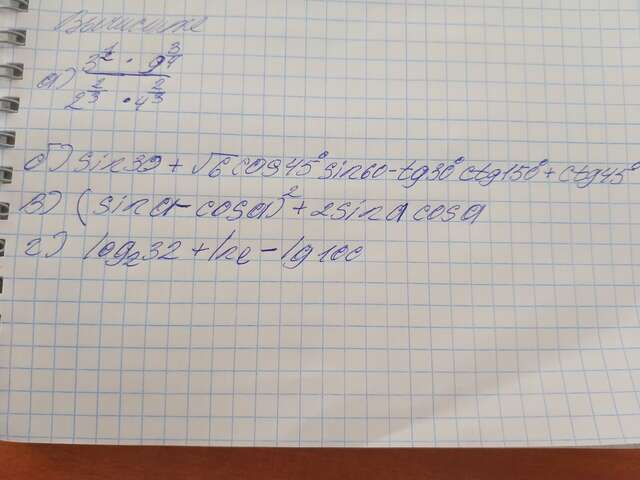 Вычислите
а) 3^{1/2} · 9^{3/4} / 2^{2/3} · 4^{2/3}
б) sin30 + √6 cos45° sin60 - tg30° ctg150° + ctg45°
в) (sin a - cos a)² + 2 sin a cos a
г) log₂32 + lne - lg100